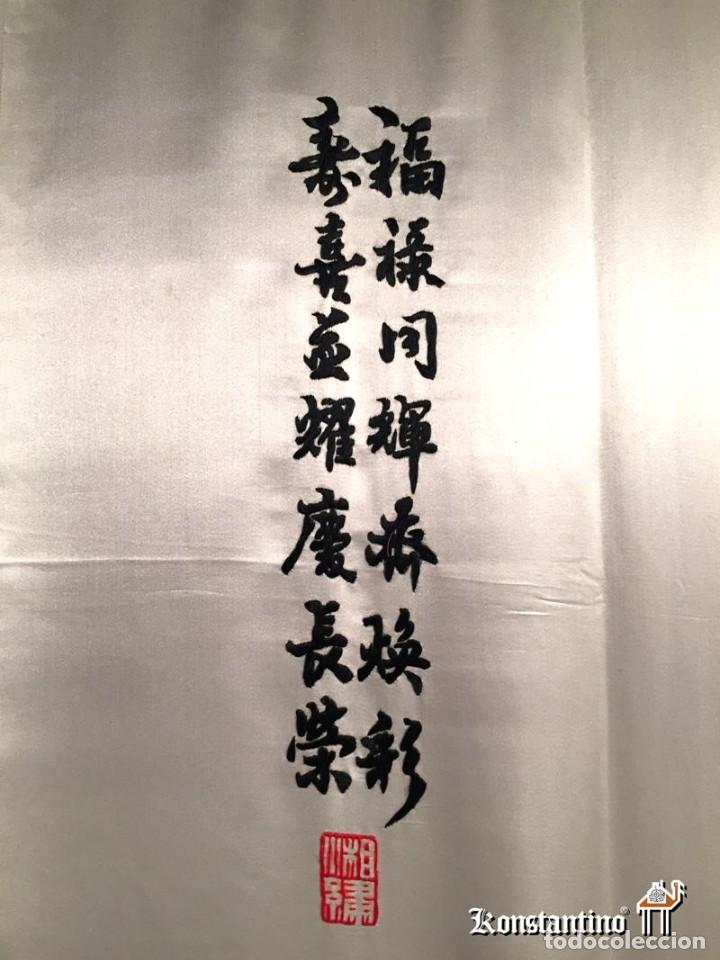 福祿同輝齊焕彩
壽喜並耀慶長榮
湘繡
Konstantino®
todocoleccion